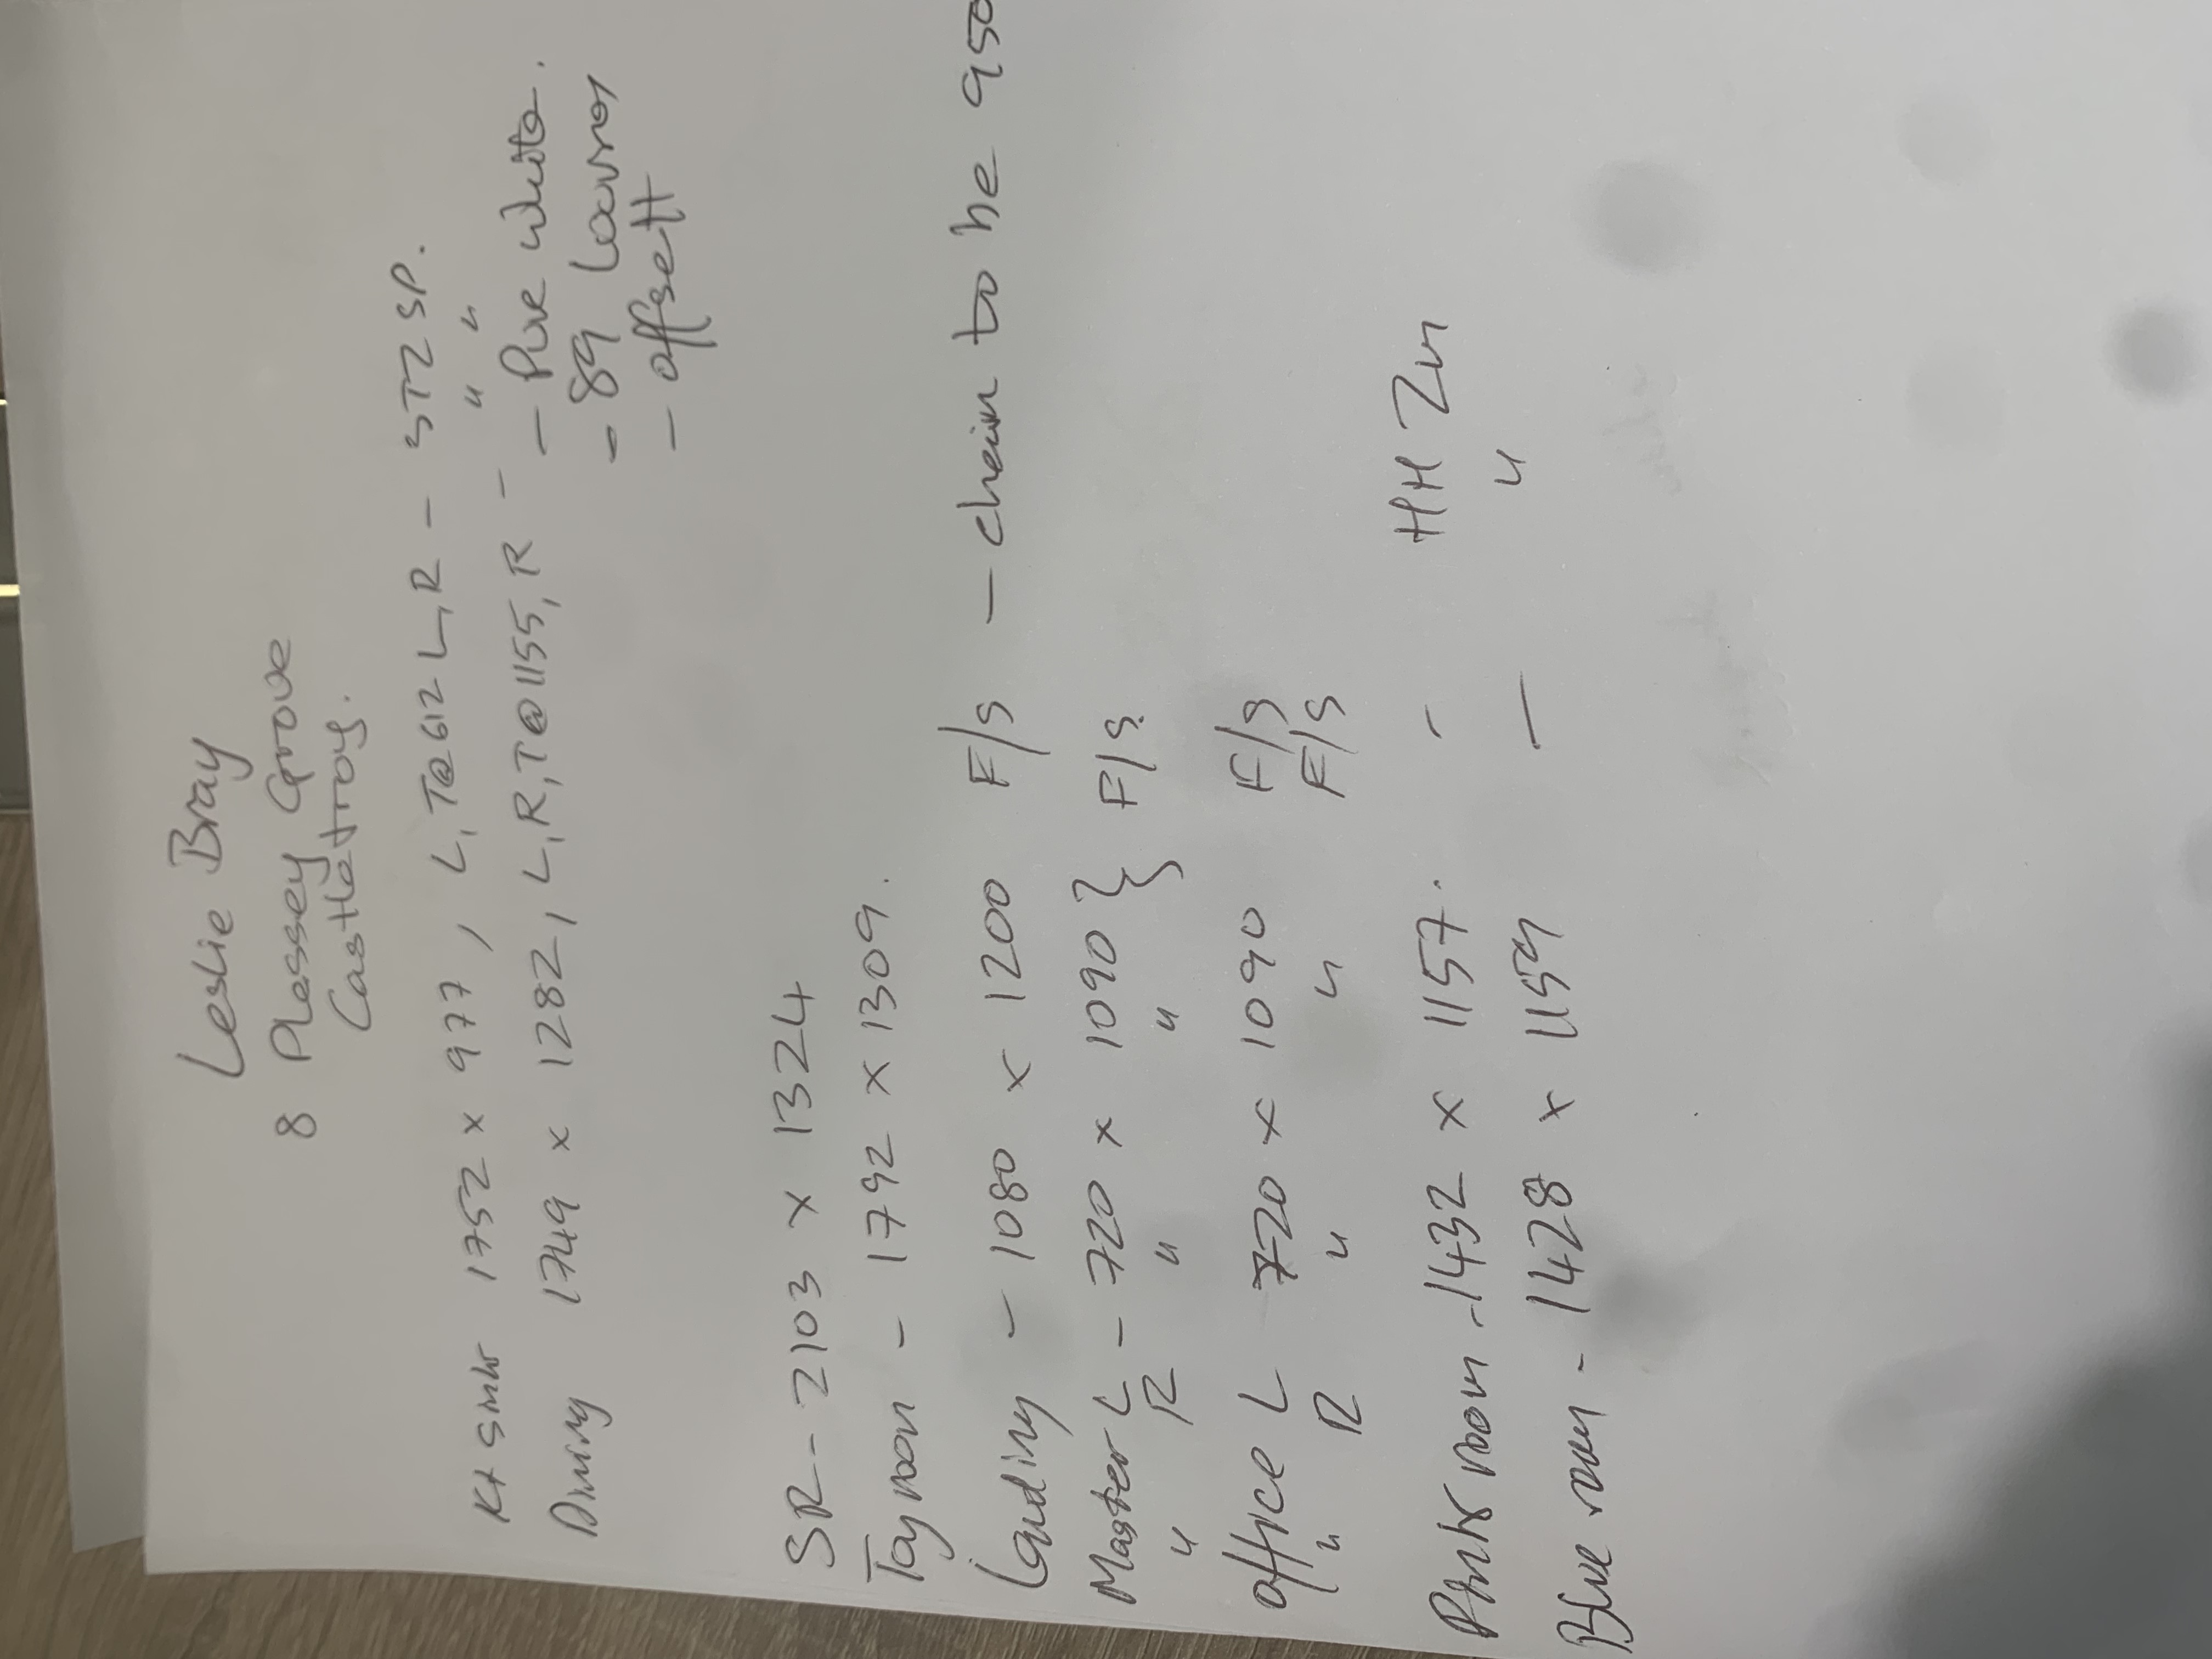 Leslie Bray
8 Plessey Grove
Castletroy.
Kt Sink 1752 x 977, L, T@612 L, R - STZ SP.
Dining 1749 x 1282, L, R, T@1155, R - " "
- Pure white.
- 89 Louvres
- offsett
SR - 2103 x 1324
Toy room - 1792 x 1309.
Landing - 1080 x 1200 F/s - chain to be 950
Master L - 720 x 1090 } F/s.
" R " "
office L 720 x 1090 F/s
" R " " F/s
Pink room - 1432 x 1157. - HH Zn
Blue room - 1428 x 1159 - "